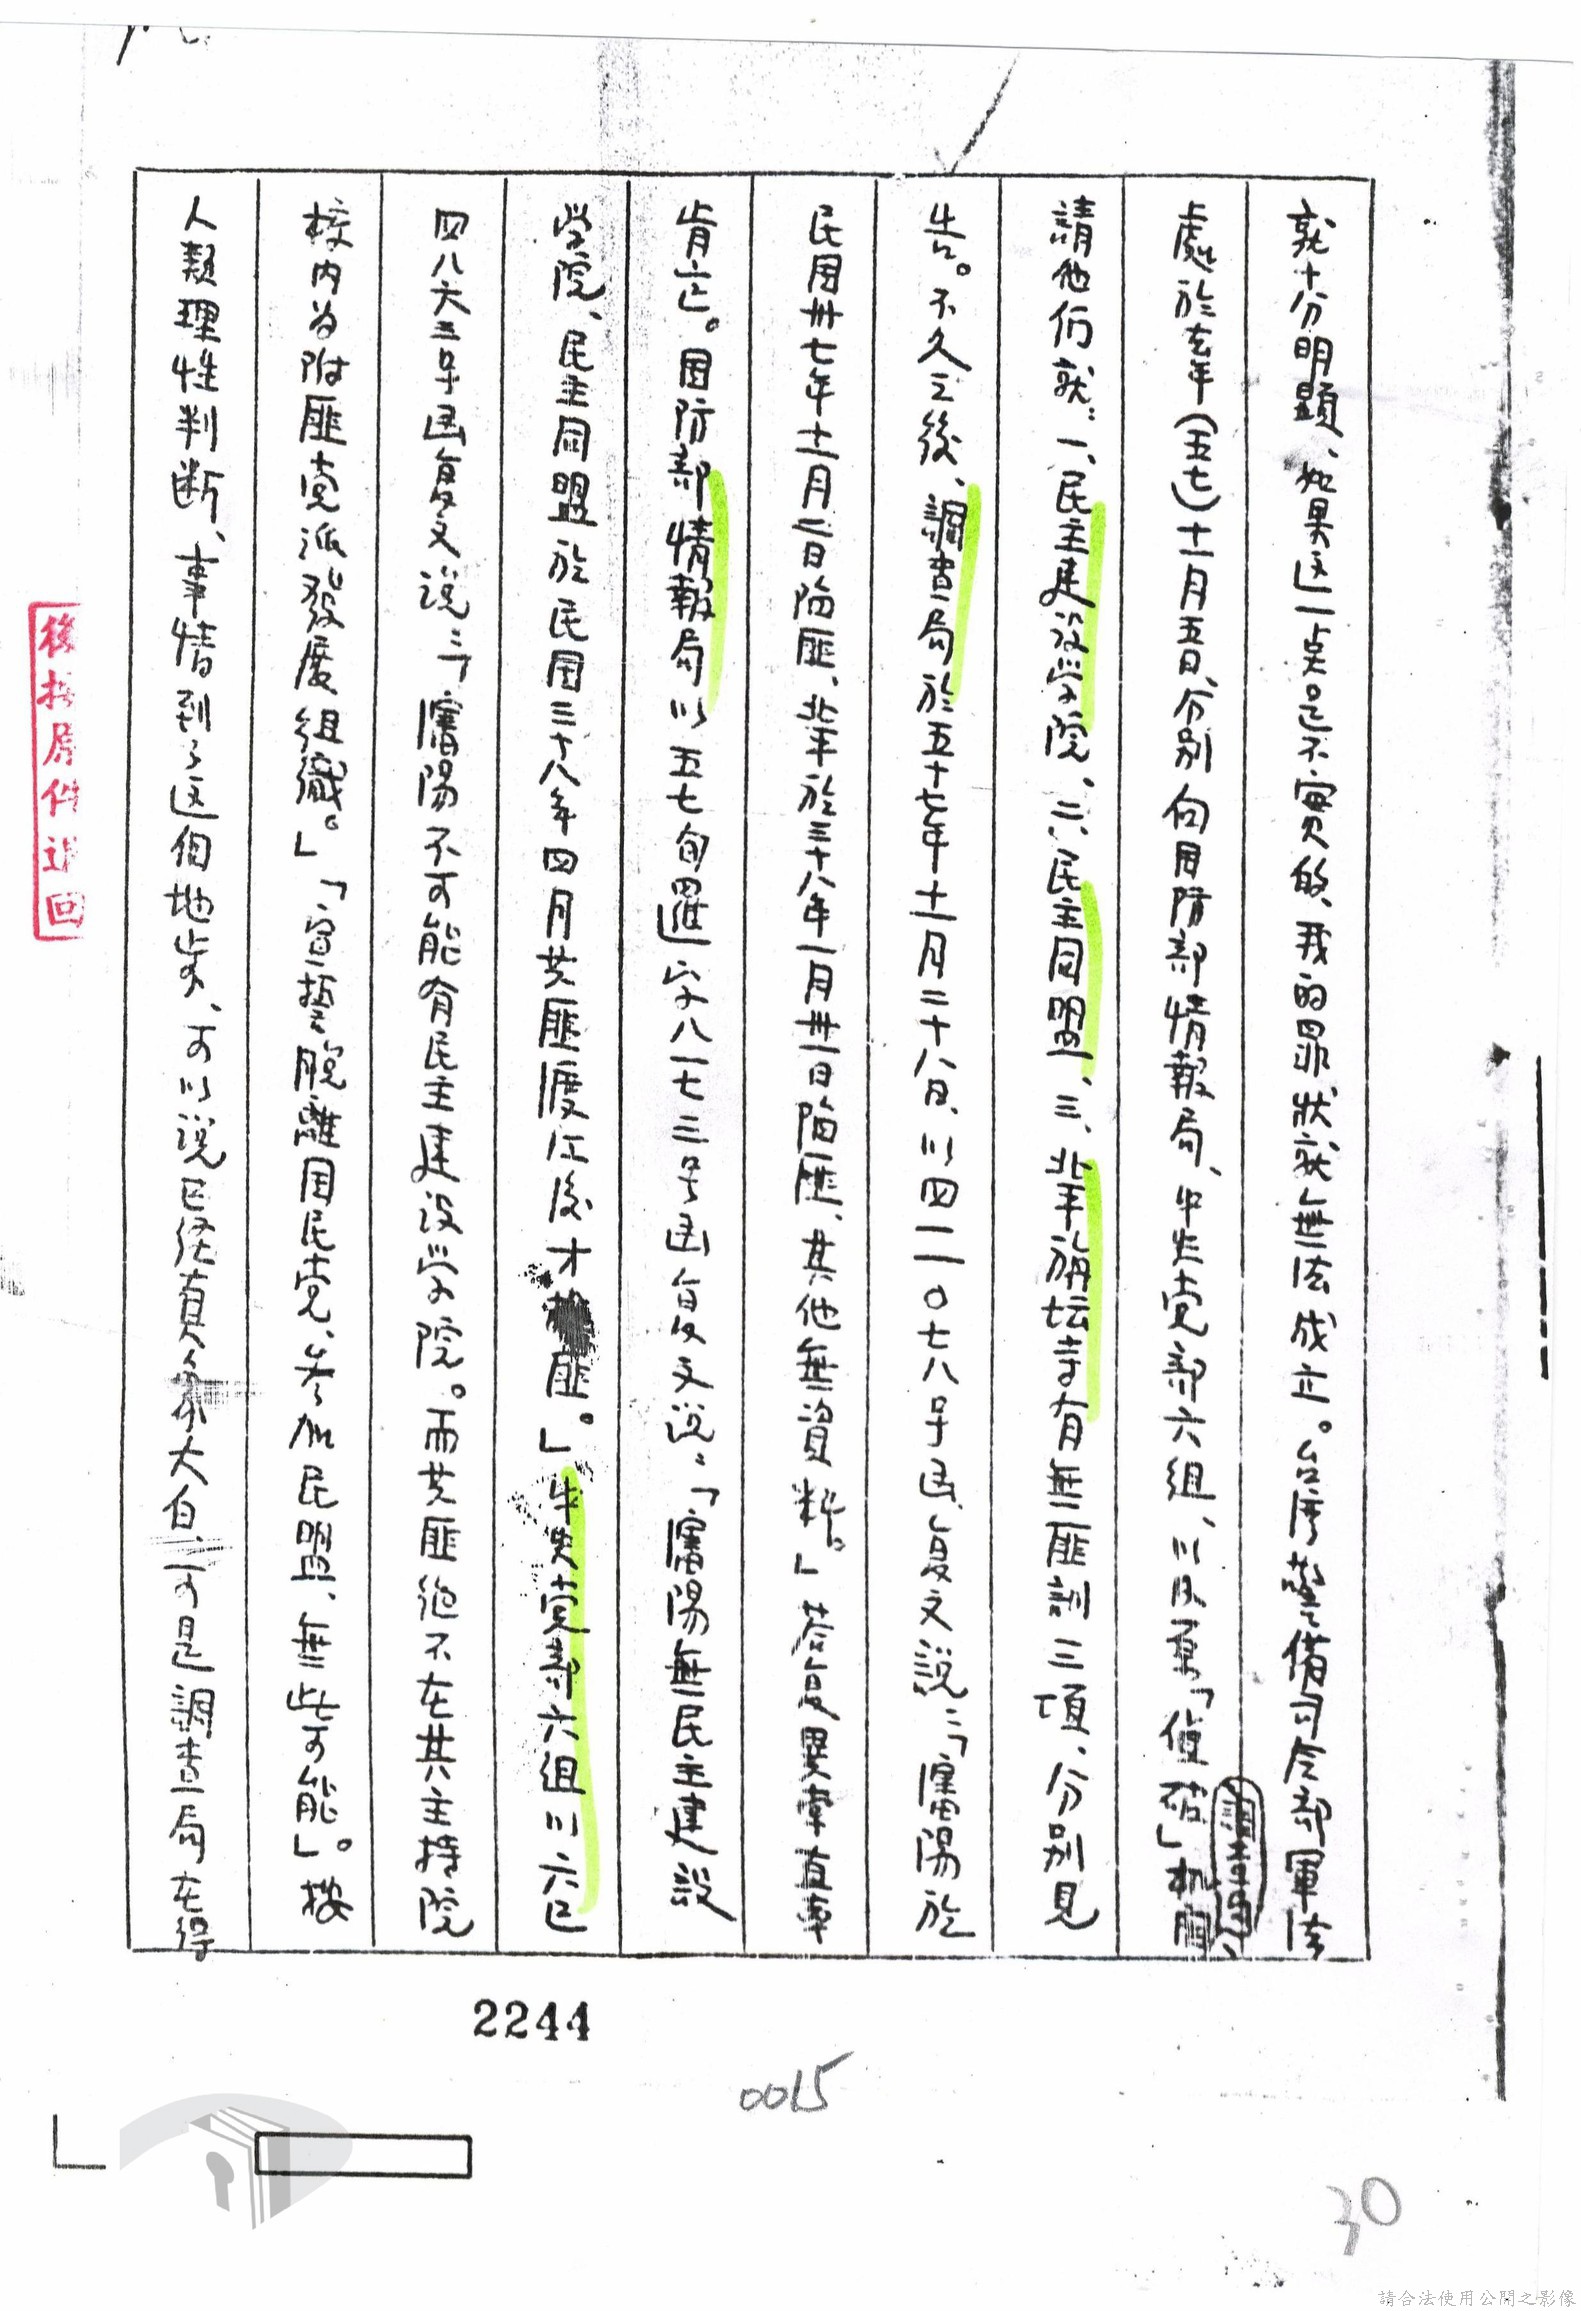 就十分明顯、如果这一点是不實的、我的罪狀就無法成立。台湾警备司令部軍法
處於去年(五七)十一月五日、分別向国防部情報局、中央党部六组、以及原「偵破」机関
調查局、
請他们就:一、民主建设学院、二、民主同盟、三、北平旃坛寺有無匪訓三項、分別見
告。不久之後、調查局於五十七年十一月二十八日、以四一一〇七八号函复文說:「瀋陽於
民国卅七年十一月二日陷匪、北平於三十八年一月卅一日陷匪、其他無資料。」答复異常直率
肯定。国防部情報局以五七旬暹字八一七三号函复文说:「瀋陽無民主建設
学院、民主同盟於民国三十八年四月共匪渡江後才 匪。」中央党部六组以六巳
四八六三号函复文说:「瀋陽不可能有民主建设学院。而共匪绝不在其主持院
校内为附匪党派發展组織。」「宣誓脫離国民党、参加民盟、無此可能」。按
人類理性判断、事情到了这個地步、可以说已经真象大白、可是調查局在得
後接原件退回
2244
0015
30
請合法使用公開之影像